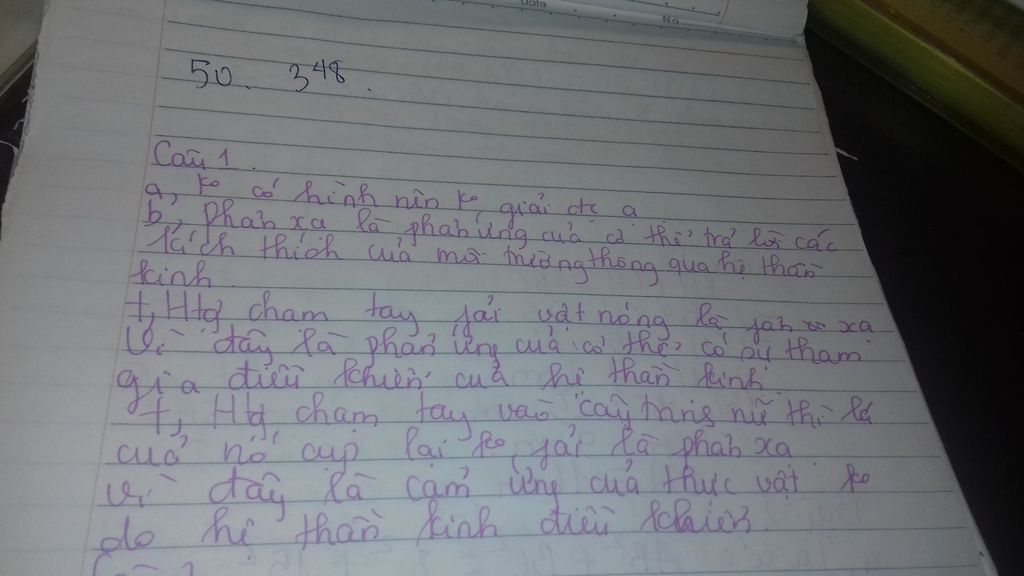 Date
No
50. 348.
Câu 1.
a, ko có hình nên ko giải đc a
b, phản xạ là phản ứng của cơ thể trả lời các
kích thích của môi trường thông qua hệ thần
kinh
+, Htg chạm tay fải vật nóng là fản xạ
Vì đây là phản ứng của cơ thể có sự tham
gia điều khiển của hệ thần kinh
+, Htg chạm tay vào cây trinh nữ thì lá
của nó cụp lại ko fải là phản xạ
vì đây là cảm ứng của thực vật ko
do hệ thần kinh điều khiển.